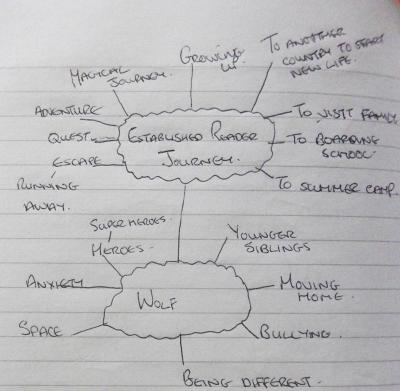 To ANOTHER
COUNTRY TO START
NEW LIFE.
GROWING
UP
MAGICAL
JOURNEY.
ADVENTURE
QUEST
ESCAPE
RUNNING
AWAY.
ESTABLISHED READER
JOURNEY.
To VISIT FAMILY
To BOARDING
SCHOOL.
To SUMMER CAMP.
SUPERHEROES.
HEROES.
YOUNGER
SIBLINGS
ANXIETY
WOLF
MOVING
HOME.
SPACE
BULLYING.
BEING DIFFERENT.